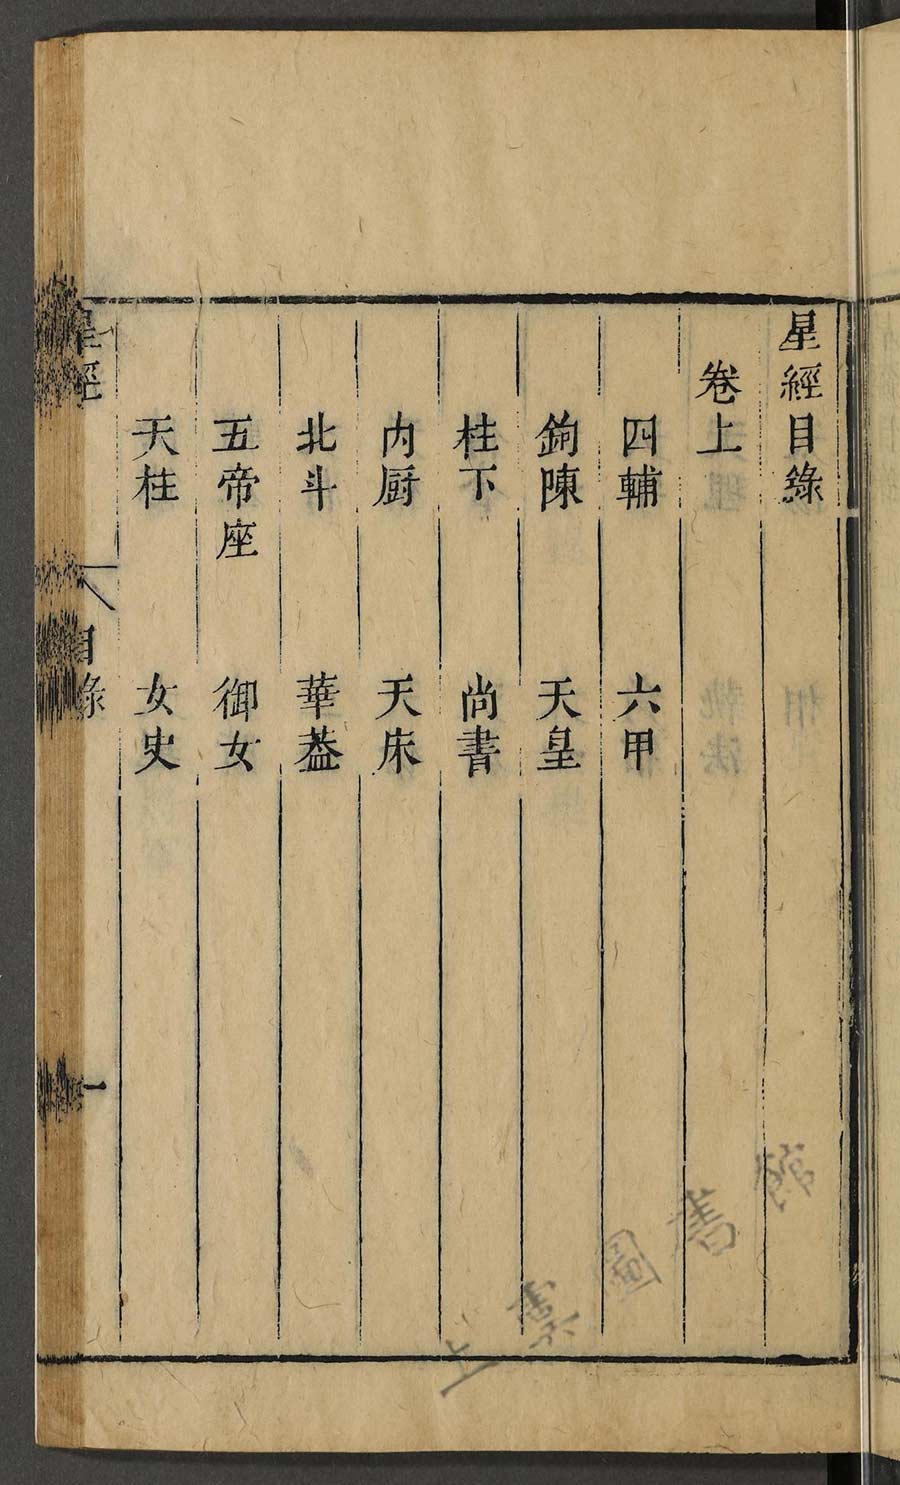 星經目錄
卷上
四輔 六甲
鉤陳 天皇
柱下 尚書
内厨 天床
北斗 華葢
五帝座 御女
天柱 女史
星經 目錄 一
上虞圖書館